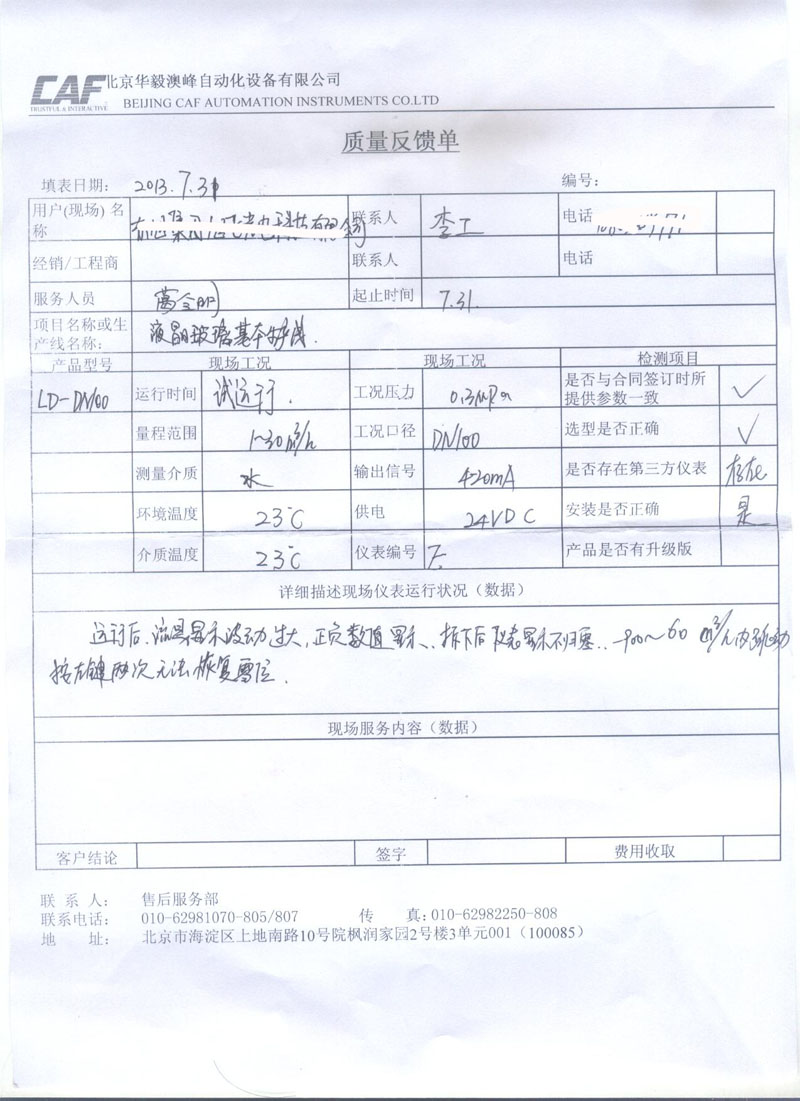 CAF 北京华毅澳峰自动化设备有限公司
TRUSTFUL & INTERACTIVE BEIJING CAF AUTOMATION INSTRUMENTS CO.LTD
质量反馈单
填表日期： 2013.7.31 编号：
用户(现场)名称 联系人 李工 电话
经销/工程商 联系人 电话
服务人员 起止时间 7.31.
项目名称或生产线名称： 液晶玻璃基本
产品型号 现场工况 现场工况 检测项目
LD-DN100 运行时间 试运行. 工况压力 0.3MPa 是否与合同签订时所提供参数一致 ✓
量程范围 1~30m³/h 工况口径 DN100 选型是否正确 ✓
测量介质 水 输出信号 4-20mA 是否存在第三方仪表 存在
环境温度 23℃ 供电 24VDC 安装是否正确 是
介质温度 23℃ 仪表编号 无 产品是否有升级版
详细描述现场仪表运行状况（数据）
运行后，流量显示波动过大，正负数值显示，拆下后仪表显示不归零，~60 m³/h内跳动
按左键两次无法恢复零位.
现场服务内容（数据）
客户结论 签字 费用收取
联 系 人： 售后服务部
联系电话： 010-62981070-805/807 传 真：010-62982250-808
地 址： 北京市海淀区上地南路10号院枫润家园2号楼3单元001（100085）